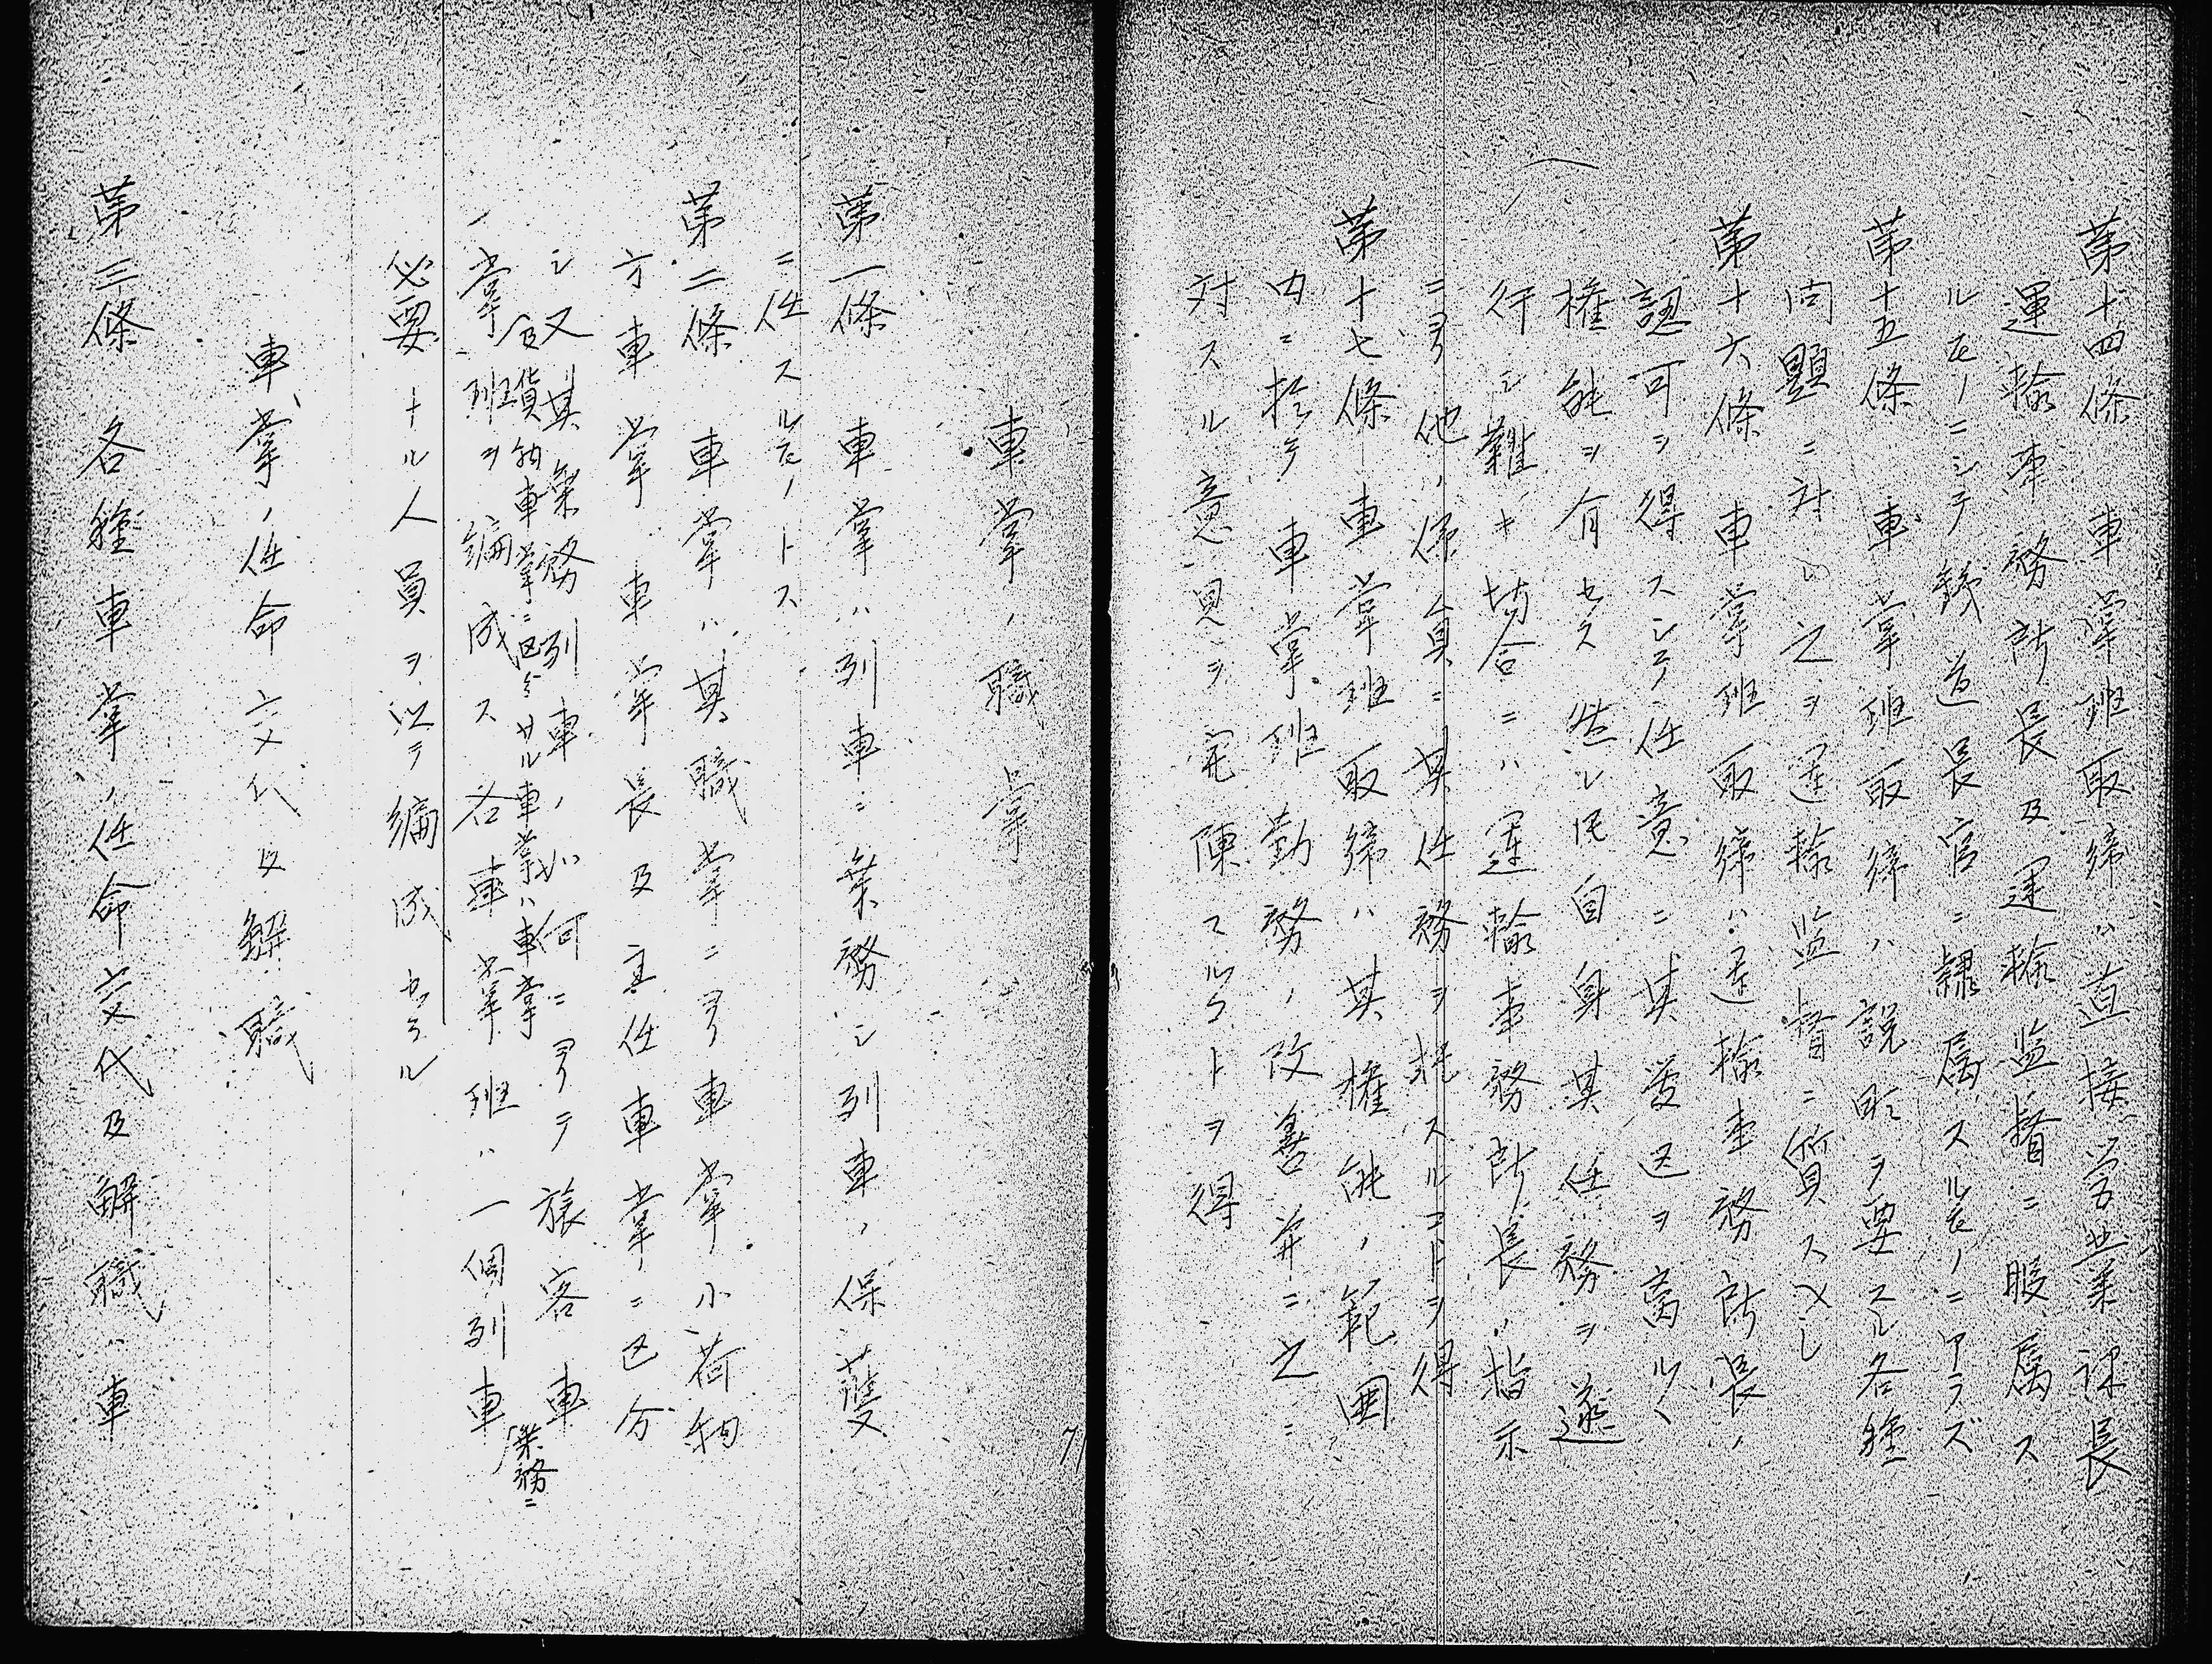 第十四條 車掌班取締ハ直接営業課長
運輸事務所長及運輸監督ニ服属ス
ルモノニシテ鉄道長官ニ隷属スルモノニアラズ
第十五條 車掌班取締ハ説明ヲ要スル各種
問題ニ対シ之ヲ運輸監督ニ質スベシ
第十六條 車掌班取締ハ運輸事務所長ノ
認可ヲ得スシテ任意ニ其受区ヲ離ルヽ
権能ヲ有セス 然レ𪜈自身其任務ヲ遂
行シ難キ場合ニハ運輸事務所長ノ指示
ニヨリ他ノ係員ニ其任務ヲ托スルコトヲ得
第十七條 車掌班取締ハ其権能ノ範囲
内ニ於テ車掌班勤務ノ改善並ニ之ニ
対スル意見ヲ開陳スルヿトヲ得
車掌ノ職掌
第一條 車掌ハ列車ニ業務シ列車ノ保護
ニ任スルモノトス
第二條 車掌ハ其職掌ニヨリ車掌小荷物
方車掌車掌長及主任車掌ニ区分
シ又其業務列車ノ如何ニヨリテ旅客車業務ニ
及貨物車掌ニ区分サル車掌ハ車掌
掌班ヲ編成ス各車掌班ハ一個列車
必要ナル人員ヲ以テ編成セラル
車掌ノ任命交代及解職
第三條 各種車掌ノ任命交代及解職ハ車